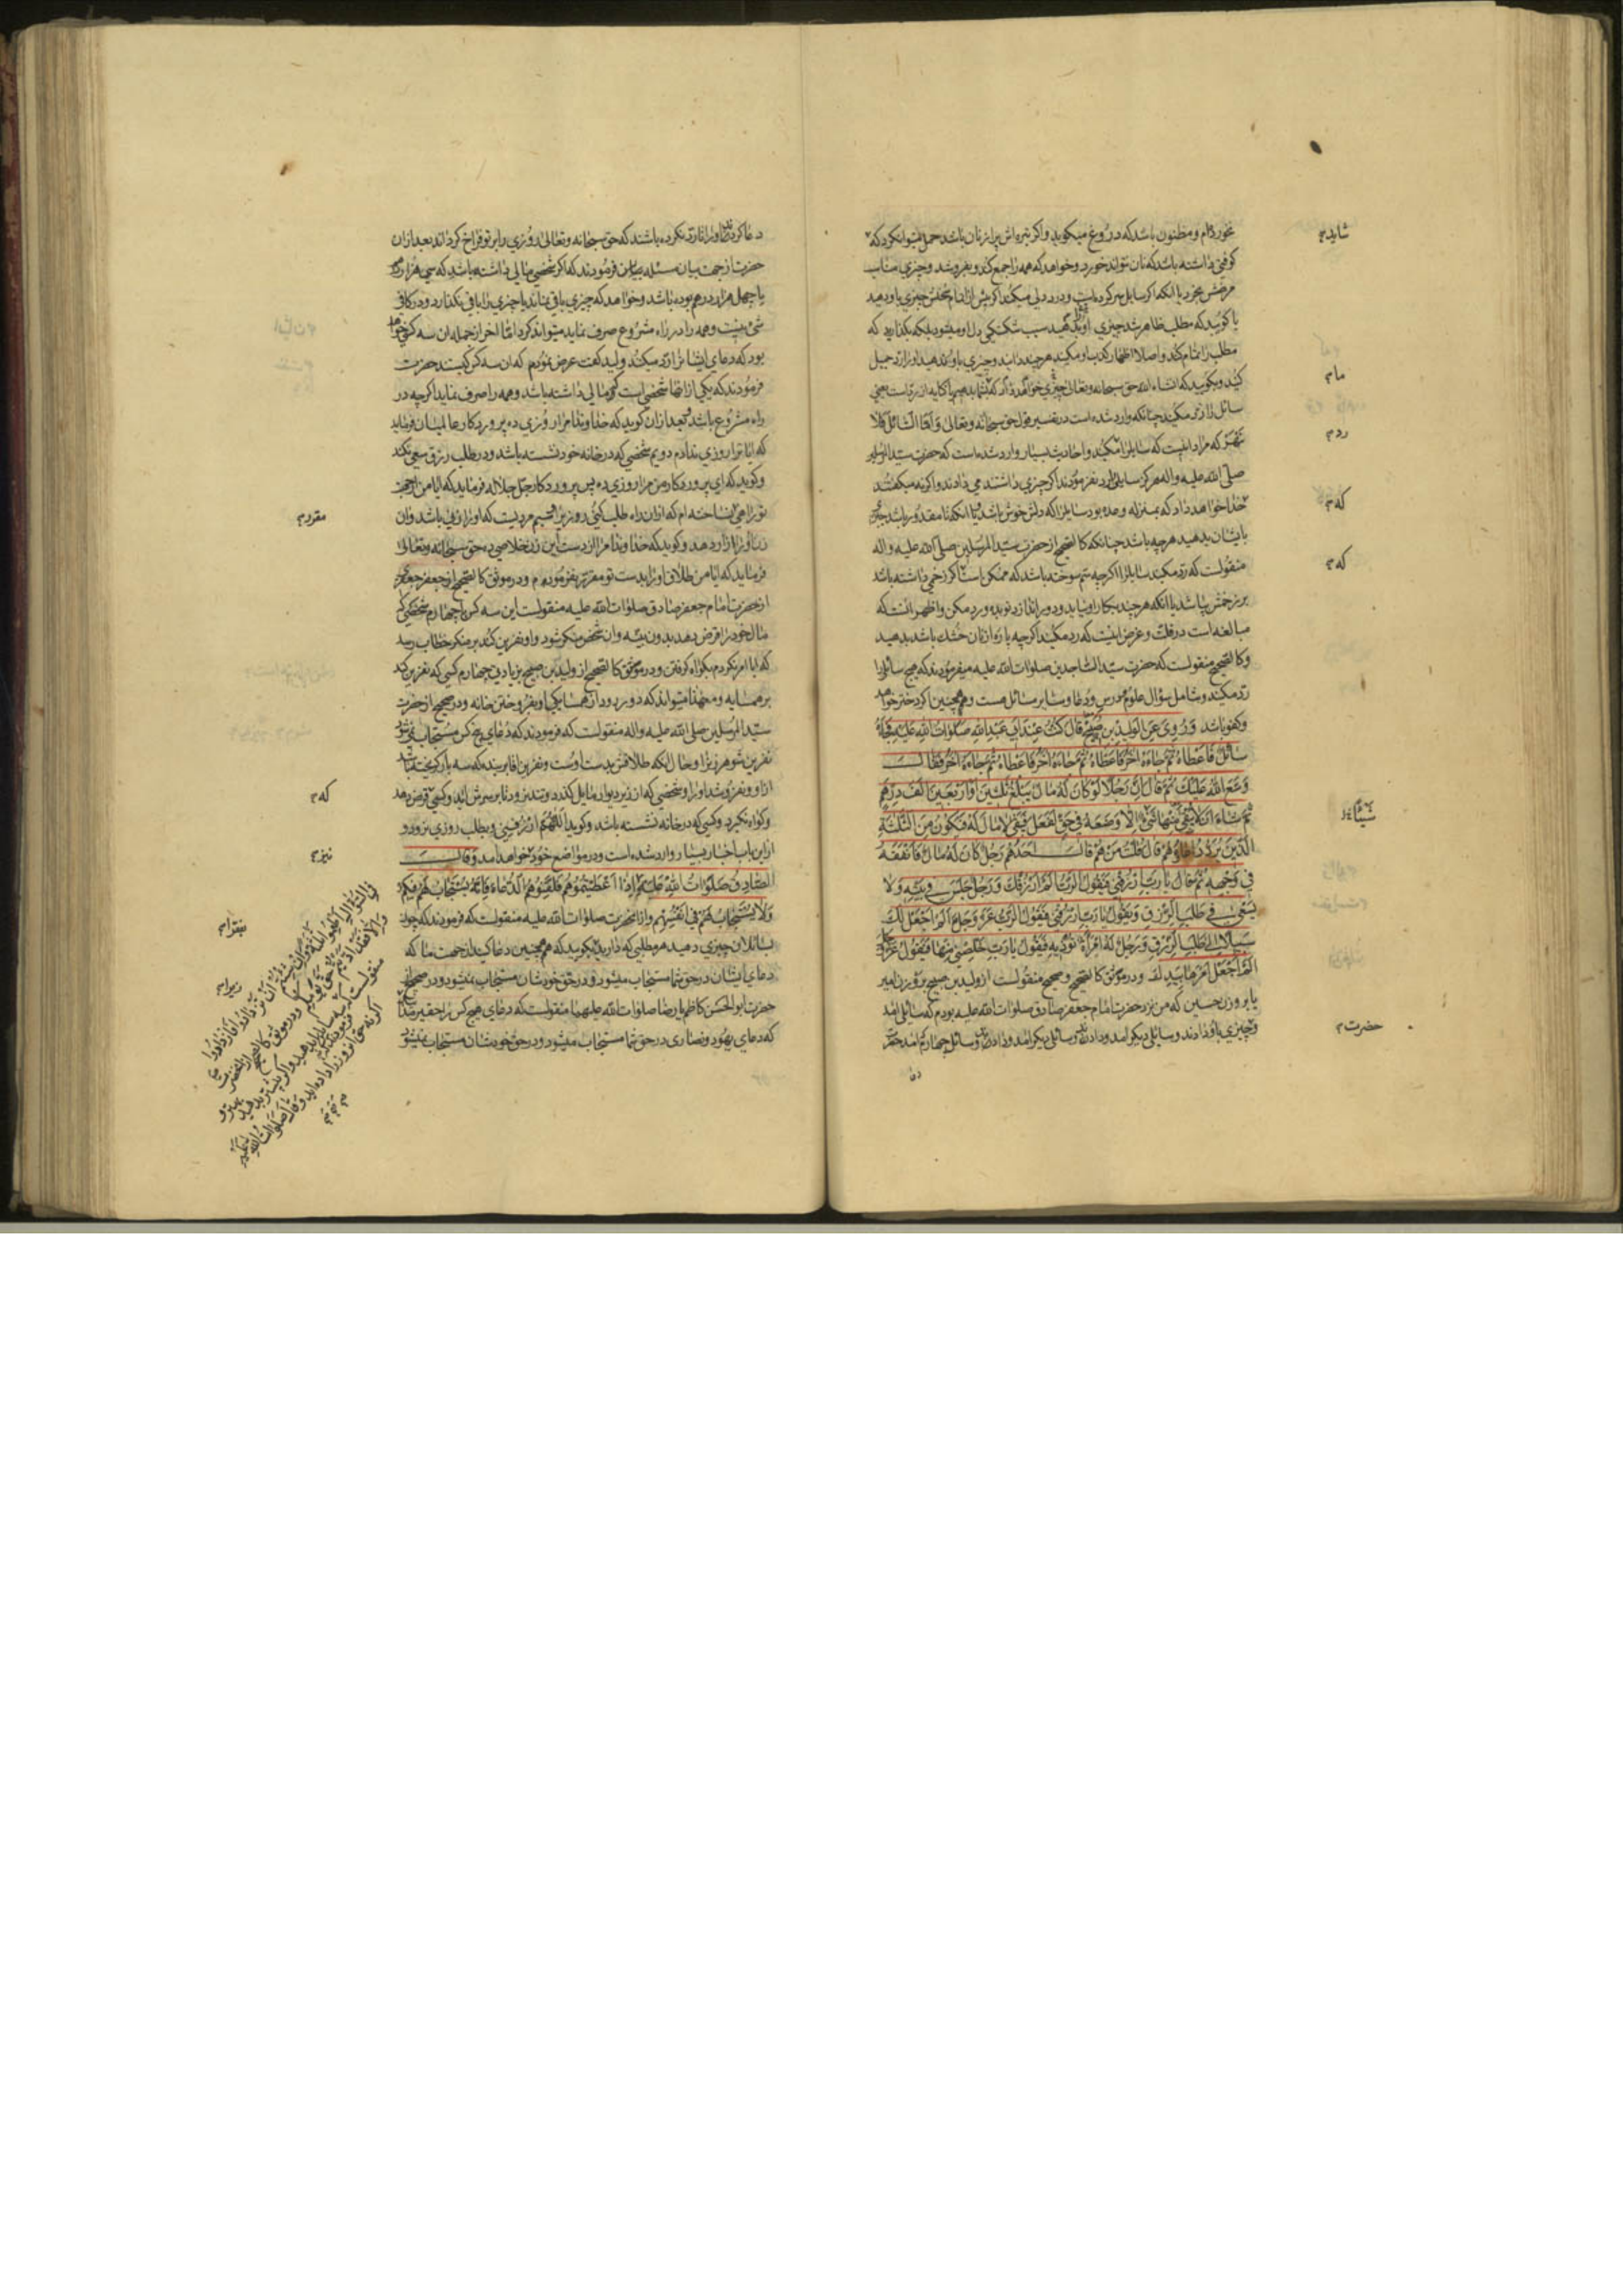 نخورده‌ام و مظنون باشد که دروغ میکوید واکر
کوفتی داشته باشد که نان نتواند خورد و خواهد که همه را جمع کند و بفروشد و چیزی مناسب
مرضش بخرد یا انکه اکر سایل سر کرده است و درد دلی میکند
یا کوید که مطلب ظاهر شد چیزی سبب شکستکی دل او میشود بلکه بکذارید که
مطلب را تمام کند و اصلا اظهار کذب او مکنید هر چند دانید و چیزی باو بدهید و او را رد جمیل
کنید و بکویید که انشاء الله حق سبحانه وتعالی چیزی خواهد داد که بشما بدهیم
سائل را زجر مکنید چنانکه وارد شده است در تفسیر قول حق سبحانه وتعالی وَاَمَّا السَّائِلَ فَلَا
تَنْهَرْ که مراد اینست که سایل را رد مکنید و احادیث بسیار وارد شده است که حضرت سید المرسلین
صلی الله علیه واله هرکز سایلی را رد نفرمودند اکر چیزی داشتند می دادند واکر نه میکفتند
خدا خواهد داد که بمنزله وعده بود سایل را که دلش خوش باشد
بایشان بدهید هر چه باشد چنانکه کالصحیح از حضرت سید المرسلین صلی الله علیه واله
منقولست که رد مکنید سایل را اکر چه سم سوخته باشد که ممکن است اکر زخمی داشته باشد
بر زخمش بپاشد یا انکه هر چند بکار او نیاید و دور اندازد تو بده و رد مکن واظهر انست که
مبالغه است در قلت و غرض اینست که رد مکنید اکر چه پاره از نان خشک باشد بدهید
وکالصحیح منقولست که حضرت سید الساجدین صلوات الله علیه میفرمودند که هیچ سائل را
رد مکنید و شامل سؤال علوم و درس و دعا و سایر مسائل هست و همچنین اکر دختر خواهد
وکفو باشد وَرُوِيَ عَنِ الْوَلِيدِ بْنِ صَبِيحٍ قَالَ كُنْتُ عِنْدَ اَبِي عَبْدِ اللهِ صَلَوَاتُ اللهِ عَلَيْهِ فَجَاءَهُ
سَائِلٌ فَاَعْطَاهُ ثُمَّ جَاءَهُ اٰخَرُ فَاَعْطَاهُ ثُمَّ جَاءَهُ اٰخَرُ فَاَعْطَاهُ ثُمَّ جَاءَهُ اٰخَرُ فَقَالَ
وَسَّعَ اللهُ عَلَيْكَ ثُمَّ قَالَ اِنَّ رَجُلًا لَوْ كَانَ لَهُ مَالٌ يَبْلُغُ ثَلٰثِينَ اَوْ اَرْبَعِينَ اَلْفَ دِرْهَمٍ
ثُمَّ شَاءَ اَنْ لَا يَبْقَى مِنْهَا شَيْءٌ اِلَّا وَضَعَهُ فِي حَقٍّ لَفَعَلَ فَيَبْقَى لَا مَالَ لَهُ فَيَكُونُ مِنَ الثَّلٰثَةِ
الَّذِينَ يُرَدُّ دُعَاؤُهُمْ قَالَ قُلْتُ مَنْ هُمْ قَالَ اَحَدُهُمْ رَجُلٌ كَانَ لَهُ مَالٌ فَاَنْفَقَهُ
فِي وَجْهِهِ ثُمَّ قَالَ يَا رَبِّ ارْزُقْنِي فَيَقُولُ الرَّبُّ اَلَمْ اَرْزُقْكَ وَرَجُلٌ جَلَسَ فِي بَيْتِهِ وَلَا
يَسْعَى فِي طَلَبِ الرِّزْقِ وَيَقُولُ يَا رَبِّ ارْزُقْنِي فَيَقُولُ الرَّبُّ عَزَّ وَجَلَّ اَلَمْ اَجْعَلْ لَكَ
سَبِيلًا اِلَى طَلَبِ الرِّزْقِ وَرَجُلٌ لَهُ امْرَأَةٌ تُؤْذِيهِ فَيَقُولُ يَا رَبِّ خَلِّصْنِي مِنْهَا فَيَقُولُ عَزَّ وَجَلَّ
اَلَمْ اَجْعَلْ اَمْرَهَا بِيَدِكَ ودر موثق کالصحیح وصحیح منقولست از ولید بن صبیح بر وزن امیر
یا بر وزن حسین که من نزد حضرت امام جعفر صادق صلوات الله علیه بودم که سایلی امد
وچیزی باو دادند وسایلی دیکر امد ودادند وسائلی دیکر امد ودادند وسائل چهارم امد حضرت
شاید
رد
که
که
شیئا
حضرت
دعا کردند واو را باشند که حق سبحانه وتعالی روزی را بر تو فراخ کرداند بعد از ان
حضرت از جهت بیان مسئله فرمودند که اکر شخصی مالی داشته باشد که سی هزار درهم
یا چهل هزار درهم بوده باشد وخواهد که چیزی باقی نماند یا چیزی را باقی نکذارد ودر کافی
شیء نیست وهمه را در راه مشروع صرف نماید میتواند کرد اما اخر از جمله ان سه کس خواهد
بود که دعای ایشان را رد میکنند ولید کفت عرض نمودم که ان سه کس کیستند حضرت
فرمودند که یکی از انها شخصی است که مالی داشته باشد وهمه را صرف نماید اکر چه در
راه مشروع باشد وبعد از ان کوید که خداوندا مرا روزی ده پروردکار عالمیان فرماید
که ایا ترا روزی ندادم دویم شخصی که در خانه خود نشسته باشد ودر طلب رزق سعی نکند
وکوید که ای پروردکار من مرا روزی ده پس پروردکار جل جلاله فرماید که ایا من از جهت
تو راهی نساخته ام که از ان راه طلب کنی روزی را سیم مردیست که او را زنی باشد وان
زن او را ازار دهد وکوید که خداوندا مرا از دست این زن خلاصی ده حق سبحانه وتعالی
فرماید که ایا من طلاق او را بدست تو مقرر نفرموده‌ام ودر موثق کالصحیح از جعفر
از حضرت امام جعفر صادق صلوات الله علیه منقولست این سه کس با چهارم شخصی که
مال خود را قرض دهد بدون بینه وان شخص منکر شود واو نفرین کند بر منکر خطاب رسد
که ایا امر نکردم بکواه کرفتن ودر موثق کالصحیح از ولید بن صبیح بزیادتی چهارم کسی که نفرین کند
بر همسایه ومعهذا میتواند که دور رود از همسایکی او بفروختن خانه ودر صحیح از حضرت
سید المرسلین صلی الله علیه واله منقولست که فرمودند که دعای پنج کس مستجاب نمی شود
نفرین شوهر زن را وحال انکه طلاقش بدست اوست ونفرین اقا بر بنده که سه بار کریخته باشد
از او ونفروشد او را وشخصی که از زیر دیوار مایل کذرد وتند نرود تا بر سرش اید وکسی که قرض دهد
وکواه نکیرد وکسی که در خانه نشسته باشد وکوید اَللّٰهُمَّ ارْزُقْنِي وبطلب روزی نرود و
از این باب اخبار بسیار وارد شده است ودر مواضع خود خواهد امد وَقَالَ
الصَّادِقُ صَلَوَاتُ اللهِ عَلَيْهِ اِذَا اَعْطَيْتُمُوهُمْ فَلَقِّنُوهُمُ الدُّعَاءَ فَاِنَّهُ يُسْتَجَابُ لَهُمْ فِيكُمْ
وَلَا يُسْتَجَابُ لَهُمْ فِي اَنْفُسِهِمْ واز انحضرت صلوات الله علیه منقولست که فرمودند که چون
بسائلان چیزی دهید هر مطلبی که دارید بکویید که همچنین دعا کنید از جهت ما که
دعای ایشان در حق شما مستجاب میشود ودر حق خودشان مستجاب نمیشود ودر صحیح از
حضرت ابو الحسن کاظم یا رضا صلوات الله علیهما منقولست که دعای هیچ کس را حقیر مدانید
که دعای یهود ونصاری در حق شما مستجاب میشود ودر حق خودشان مستجاب نمیشود
که
نیز